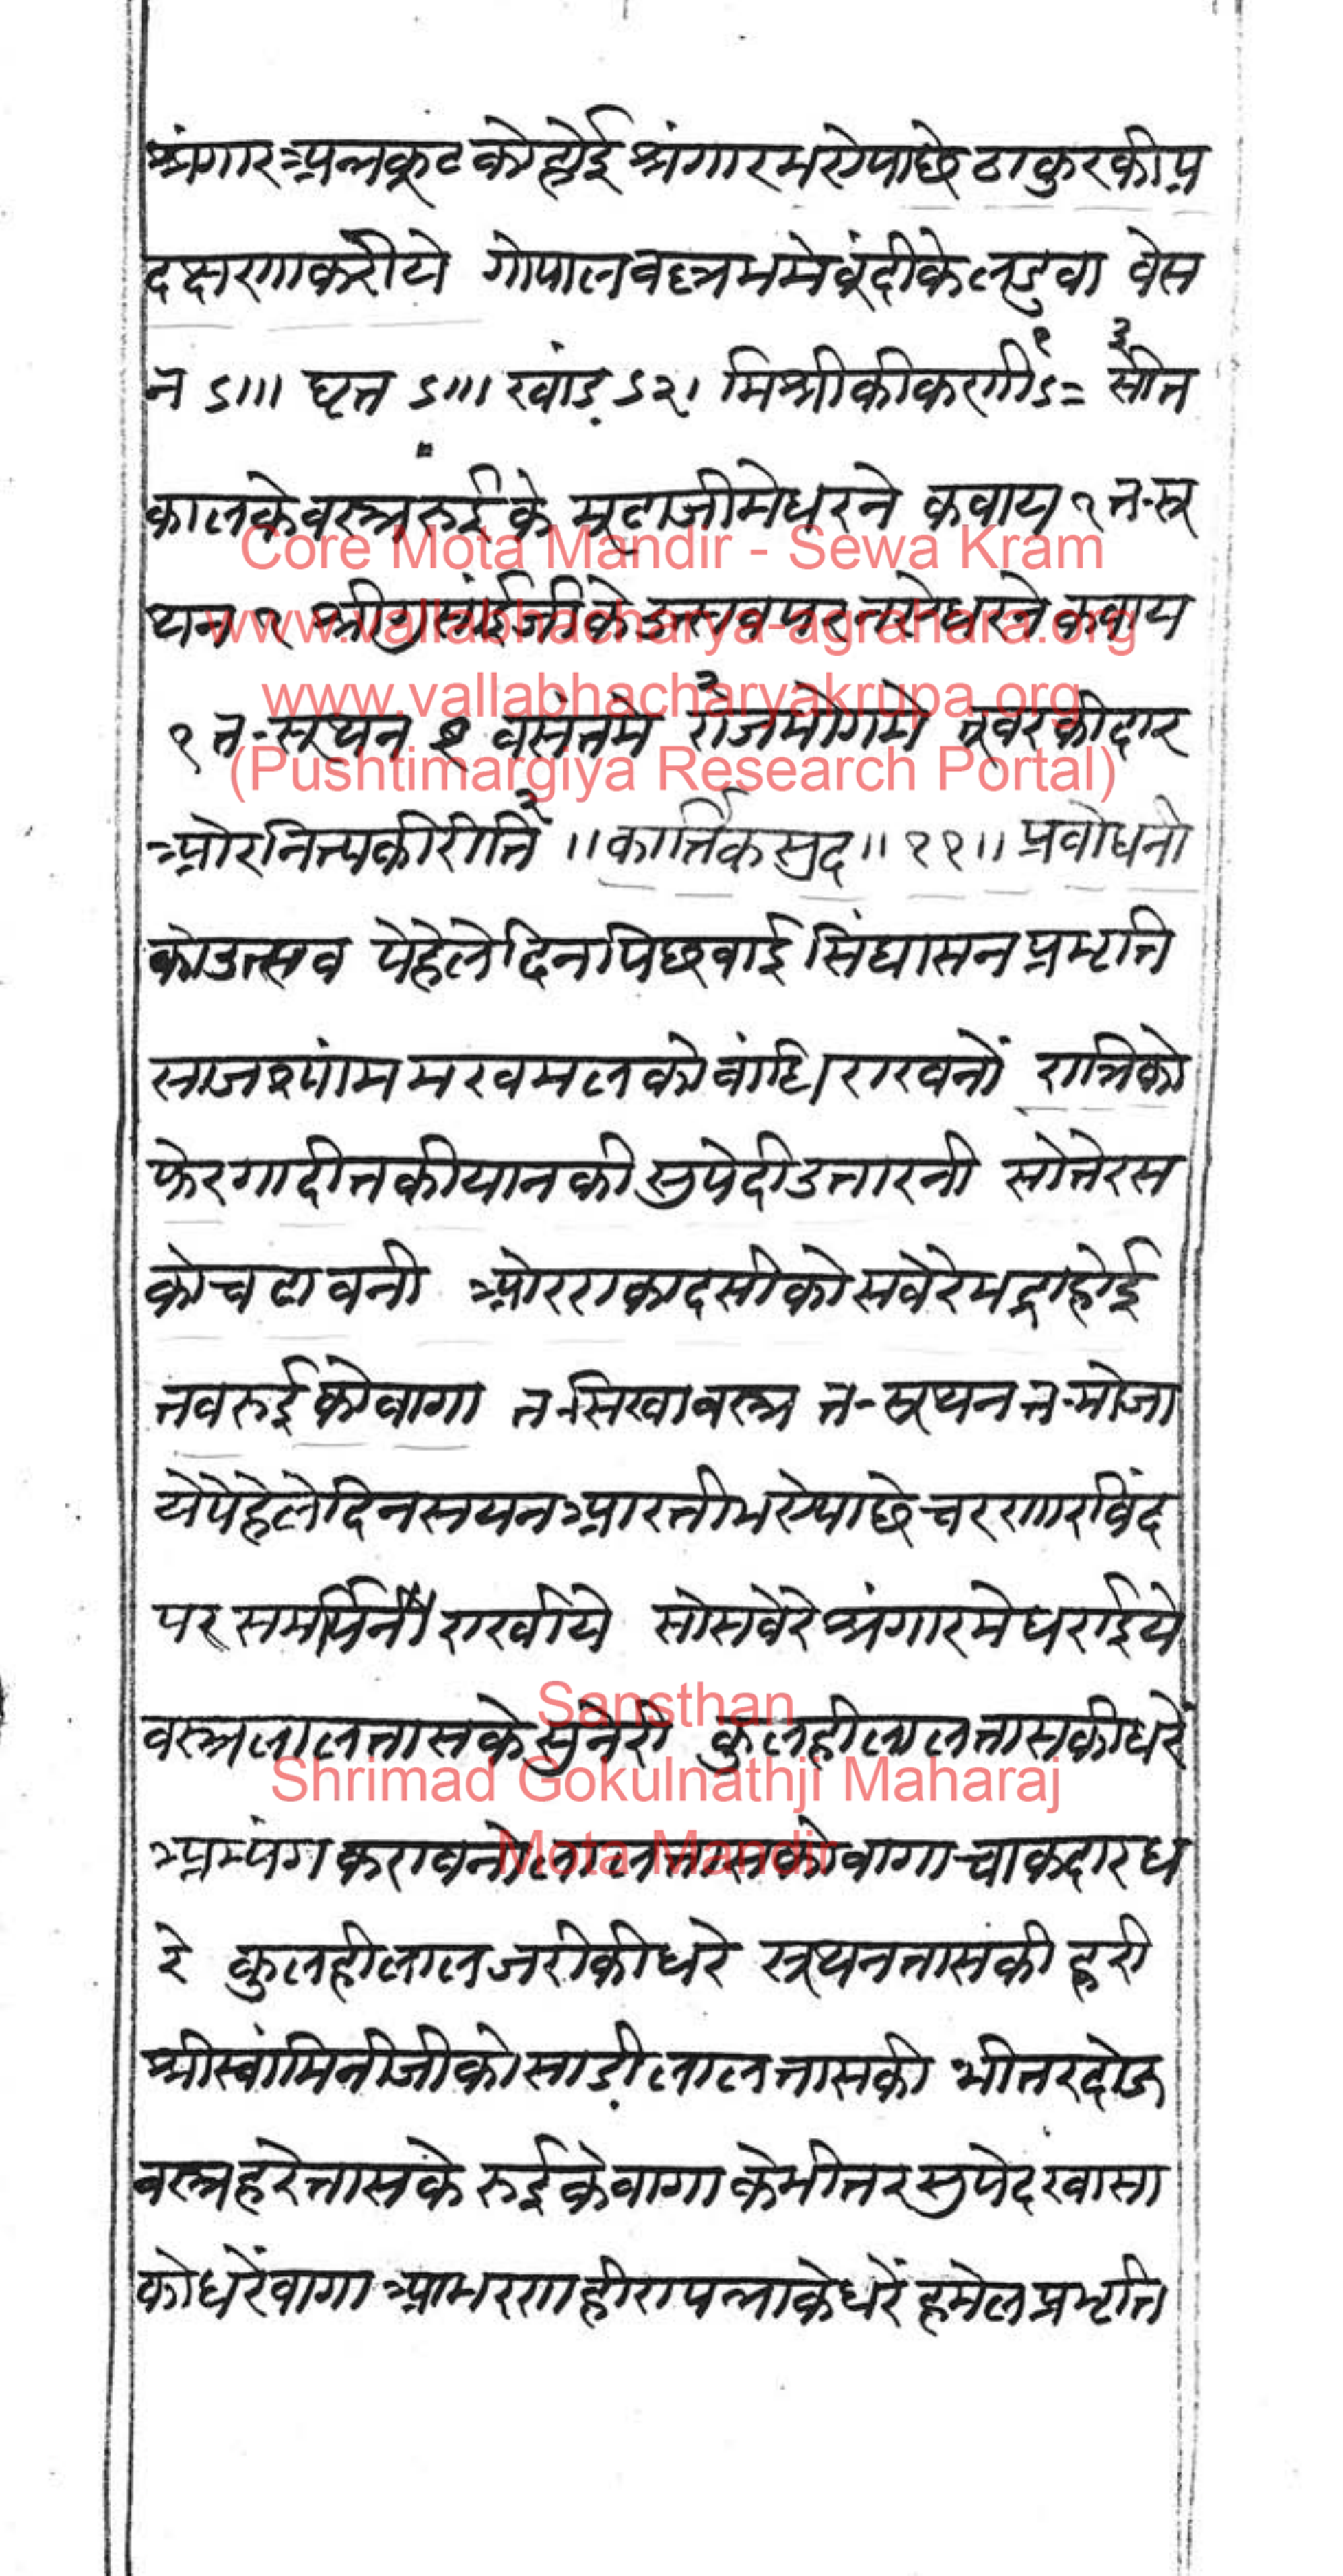 श्रंगार अन्नकूट को होई श्रंगार भये पाछे ठाकुर की प्र
दक्षणा करीये गोपालवल्लभ मे बूंदी के लडुवा वेस
न ऽ॥। घृत ऽ॥। खांड़ ऽ२। मिश्री की कणी ऽ= सीत
काल के वस्त्र रुई के मूढाजी मे धरने कवाय १ त-सू
थन १ श्रीगुसांईजी के उत्सव पर नये धरने कवाय
१ त-सूथन १ वसंत मे राजभोग मे तूवर की दार
ओर नित्य की रीति ॥ कार्त्तिक सुद ॥ ११॥ प्रबोधनी
को उत्सव पेहेले दिन पिछवाई सिंघासन प्रभृति
साज श्यांम मखमल को बांधि राखनों रात्रि को
फेर गादी तकीयान की सुपेदी उतारनी सो तेरस
को चढावनी ओर एकादसी को सवेरे भद्रा होई
तब रुई को वागा त-सिखा वस्त्र त-सूथन त-मोजा
ये पेहेले दिन सयन आरती भये पाछे चरणारविंद
पर समर्पिनो राखीये सो सवेरे श्रंगार मे धराईये
वस्त्र लाल तास के सुनेरी कुलही लाल तास की धरें
अभ्यंग करावनो लाल तास को वागा चाकदार ध
रे कुलही लाल जरी की धरे सूथन तास की हरी
श्रीस्वांमिनीजी को साड़ी लाल तास की भीतर दोऊ
वस्त्र हरे तास के रुई के वागा के भीतर सुपेद खासा
को धरें वागा आभरण हीरा पन्ना के धरें हमेल प्रभृति
Core Mota Mandir - Sewa Kram
www.vallabhacharya-agrahara.org
www.vallabhacharyakrupa.org
(Pushtimargiya Research Portal)
Sansthan
Shrimad Gokulnathji Maharaj
Mota Mandir